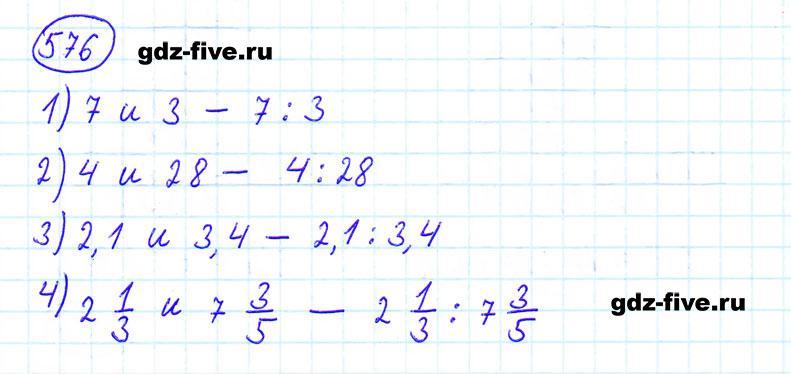 576 gdz-five.ru
1) 7 и 3 – 7 : 3
2) 4 и 28 – 4 : 28
3) 2,1 и 3,4 – 2,1 : 3,4
4) 2 1/3 и 7 3/5 – 2 1/3 : 7 3/5 gdz-five.ru